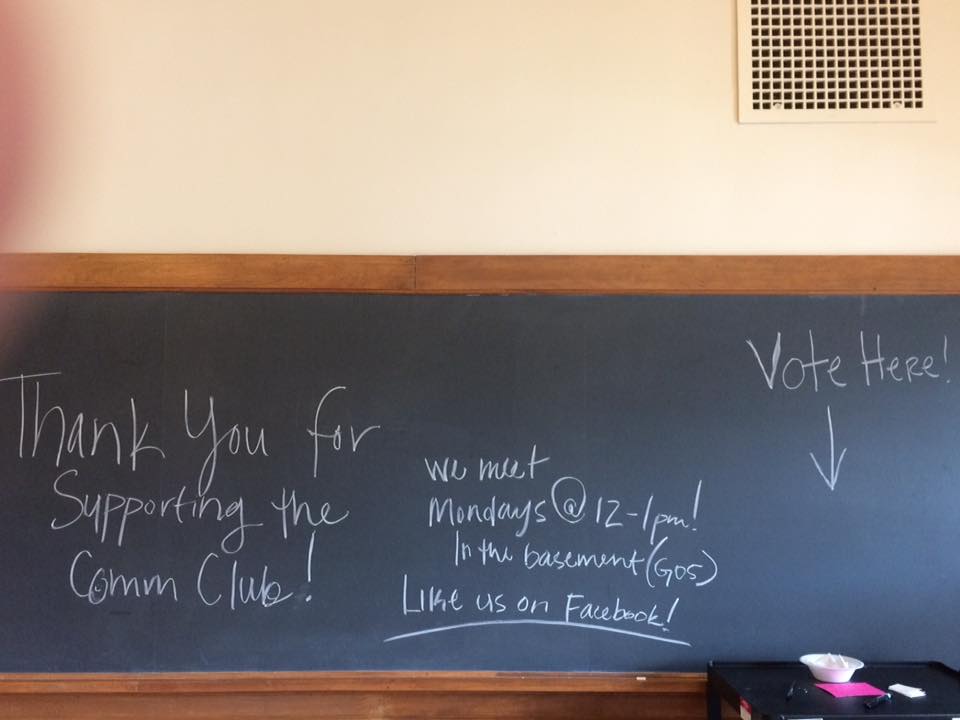 Thank You for
Supporting the
Comm Club!
We meet
Mondays @ 12-1pm!
In the basement (G05)
Like us on Facebook!
Vote Here!